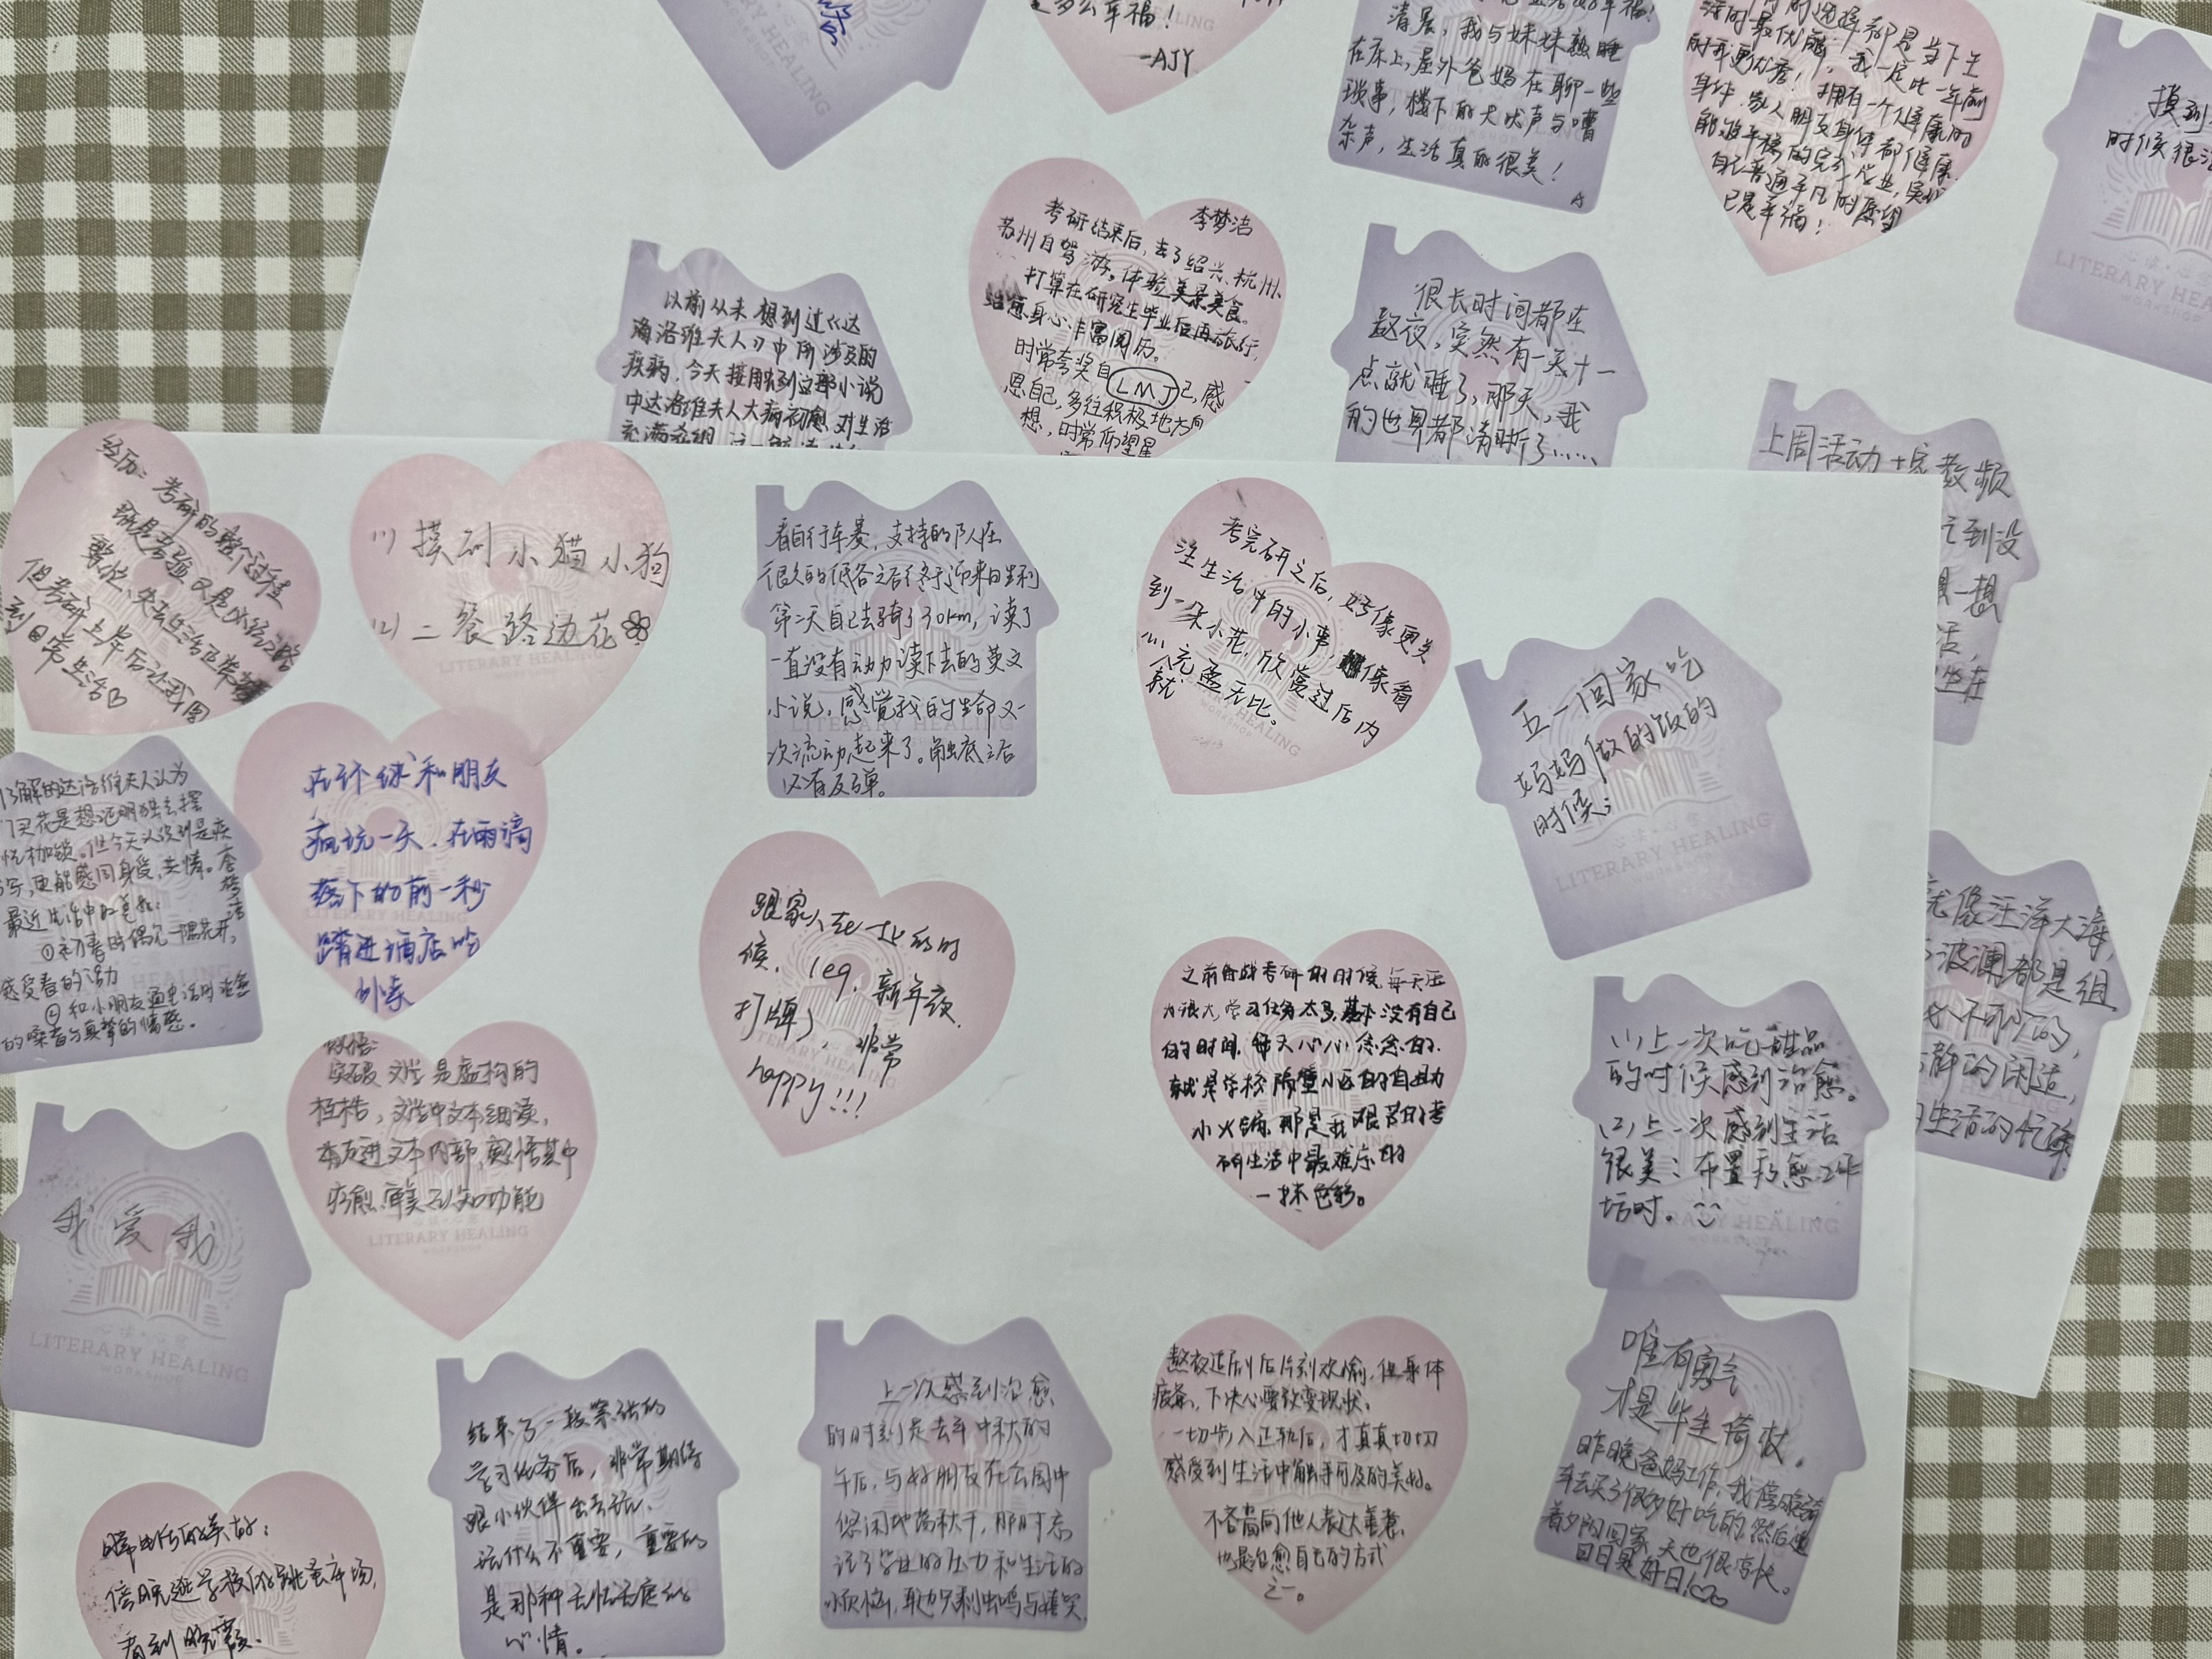 是多么幸福！
-AJY
清晨，我与妹妹熟睡
在床上，屋外爸妈在聊一些
琐事，楼下的犬吠声与嘈
杂声，生活真的很美！
的选择都是当下生
活的最优解，我一定比一年前
的我更优秀！拥有一个健康的
身体，家人朋友身体都健康，
能够平稳的完成学业，实现
自己普通平凡的愿望
已是幸福！
摸到
时候很
LITERARY HEALING
李梦洁
考研结束后，去了绍兴、杭州、
苏州自驾游。体验美景美食。
打算在研究生毕业后再旅行，
治愈身心、丰富阅历。
时常夸奖自己，感
LMJ
恩自己，多往积极地方向
想，时常仰望星
以前从未想到过《达
洛维夫人》中所涉及的
疾病，今天接触到这部小说
中达洛维夫人大病初愈，对生活
很长时间都在
熬夜，突然有一天十一
点就睡了，那天，我
的世界都清晰了……
上周活动
教频
到没
想一想
坐在
就像汪洋大海，
波澜都是组
静的闲适，
生活的忆
经历：考研的整个过程
既是考验又是必经之路
但考研上岸后让我回
到日常生活♡
(1) 摸到小猫小狗
(2) 二餐路边花
LITERARY HEALING
看自行车赛，支持的队在
很久的低谷之后终于迎来日胜利
第二天自己去骑了30km，读了
一直没有动力读下去的英文
小说，感觉我的生命又一
次流动起来了。触底之后
必有反弹。
考完研之后，好像更关
注生活中的小事，像看
到一朵小花，欣赏过后内
心充盈无比。
就
五一回家吃
妈妈做的饭的
时候；
心读·心愈
LITERARY HEALING
了解的达洛维夫人认为
买花是想证明独立摆
枷锁。但今天认识到是疾
更能感同身受，共情。
李梦洁
最近生活中的色彩：
①初春时偶见一隅花开，
感受春的活力
②和小朋友通电话时
的嗓音与真挚的情感。
在环球和朋友
疯玩一天，在雨滴
落下的前一秒
踏进酒店吃
外卖
跟家人在一起的时
候，leg，新年夜
打牌，非常
happy!!!
之前备战考研的时候，每天压
力很大，学习任务太多，基本没有自己
的时间，每天心心念念的，
就是学校隔壁小区的自助
小火锅，那是我艰苦的考
研生活中最难忘的
一抹色彩。
(1)上一次吃甜品
的时候感到治愈。
(2)上一次感到生活
很美：布置疗愈工作
坊时。
感悟：
突破文学是虚构的
桎梏，文学中文本细读，
真正进文本内部，感悟其中
疗愈、审美、认知功能
LITERARY HEALING
我爱我
心读·心愈
LITERARY HEALING
WORKSHOP
唯有勇气
才是毕生倚仗。
昨晚爸妈工作，我傍晚骑
车去买了很多好吃的，然后迎
着夕阳回家，天也很凉快。
日日是好日！♡
熬夜追剧后片刻欢愉，但身体
疲惫，下决心要改变现状。
一切步入正轨后，才真真切切
感受到生活中触手可及的美好。
不吝啬向他人表达善意，
也是治愈自己的方式
之一。
上一次感到治愈
的时刻是去年中秋的
午后，与好朋友在公园中
悠闲地荡秋千，那时忘
记了学业的压力和生活的
烦恼，耳边只剩虫鸣与嬉笑
结束了一段紧张的
学习任务后，非常期待
跟小伙伴出去玩，
玩什么不重要，重要的
是那种无忧无虑的
心情。
傍晚逛学校的跳蚤市场，
看到晚霞。